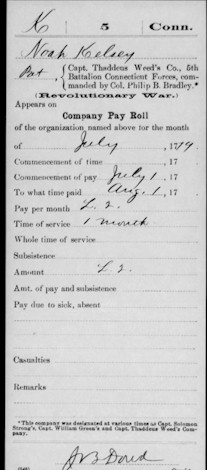 K | 5 | Conn.
Noah Kelsey
Pvt, { Capt. Thaddeus Weed's Co., 5th
Battalion Connecticut Forces, com-
manded by Col. Philip B. Bradley.*
(Revolutionary War.)
Appears on
Company Pay Roll
of the organization named above for the month
of July, 1779.
Commencement of time , 17
Commencement of pay July 1, 17
To what time paid Aug. 1, 17
Pay per month £ 2.
Time of service 1 month
Whole time of service
Subsistence
Amount £ 2.
Amt. of pay and subsistence
Pay due to sick, absent
Casualties
Remarks
*This company was designated at various times as Capt. Solomon
Strong's, Capt. William Green's and Capt. Thaddeus Weed's Com-
pany.